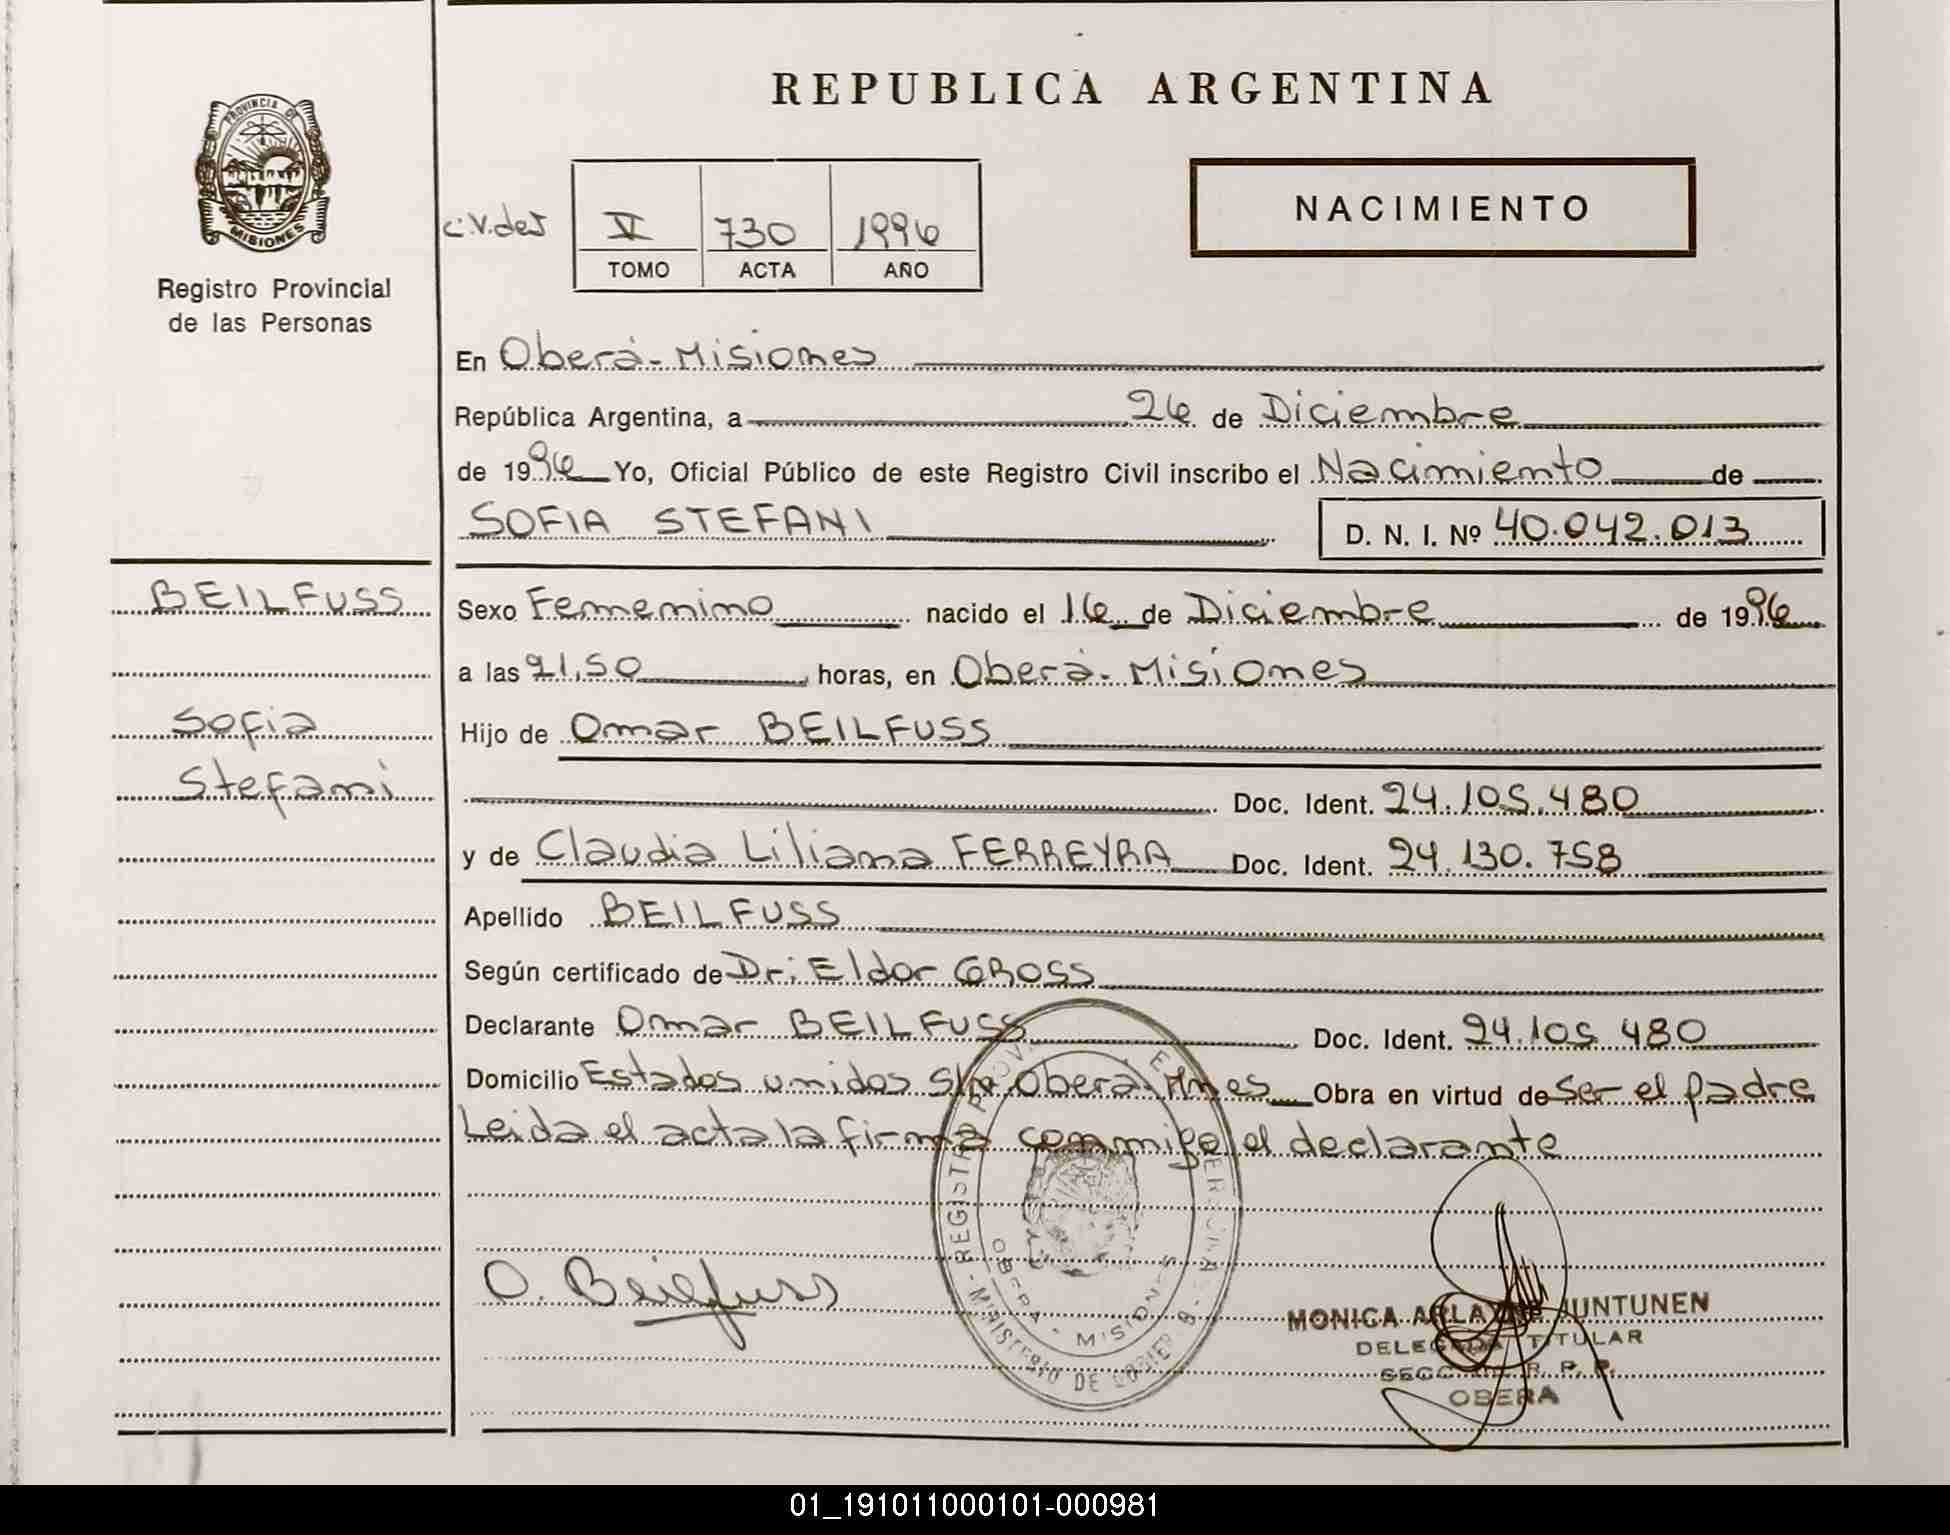 REPUBLICA ARGENTINA
PROVINCIA DE
MISIONES
Registro Provincial
de las Personas
NACIMIENTO
V 730 1996
TOMO ACTA AÑO
En Oberá-Misiones
República Argentina, a 26 de Diciembre
de 1996 Yo, Oficial Público de este Registro Civil inscribo el Nacimiento de
SOFIA STEFANI D. N. I. Nº 40.042.013
BEILFUSS
Sofia
Stefani
Sexo Femenino nacido el 16 de Diciembre de 1996
a las 21,50 horas, en Oberá-Misiones
Hijo de Omar BEILFUSS
Doc. Ident. 24.105.480
y de Claudia Liliana FERREYRA Doc. Ident. 24.130.758
Apellido BEILFUSS
Según certificado de Dr: Eldor GROSS
Declarante Omar BEILFUSS Doc. Ident. 24.105.480
Domicilio Estados unidos s/n Oberá-Mnes Obra en virtud de Ser el padre
Leida el acta la firma conmigo el declarante
O. Beilfuss
OBERA - MISIONES
MINISTERIO DE GOBIERNO
MONICA JUNTUNEN
TITULAR
R. P. P.
OBERA
01_191011000101-000981